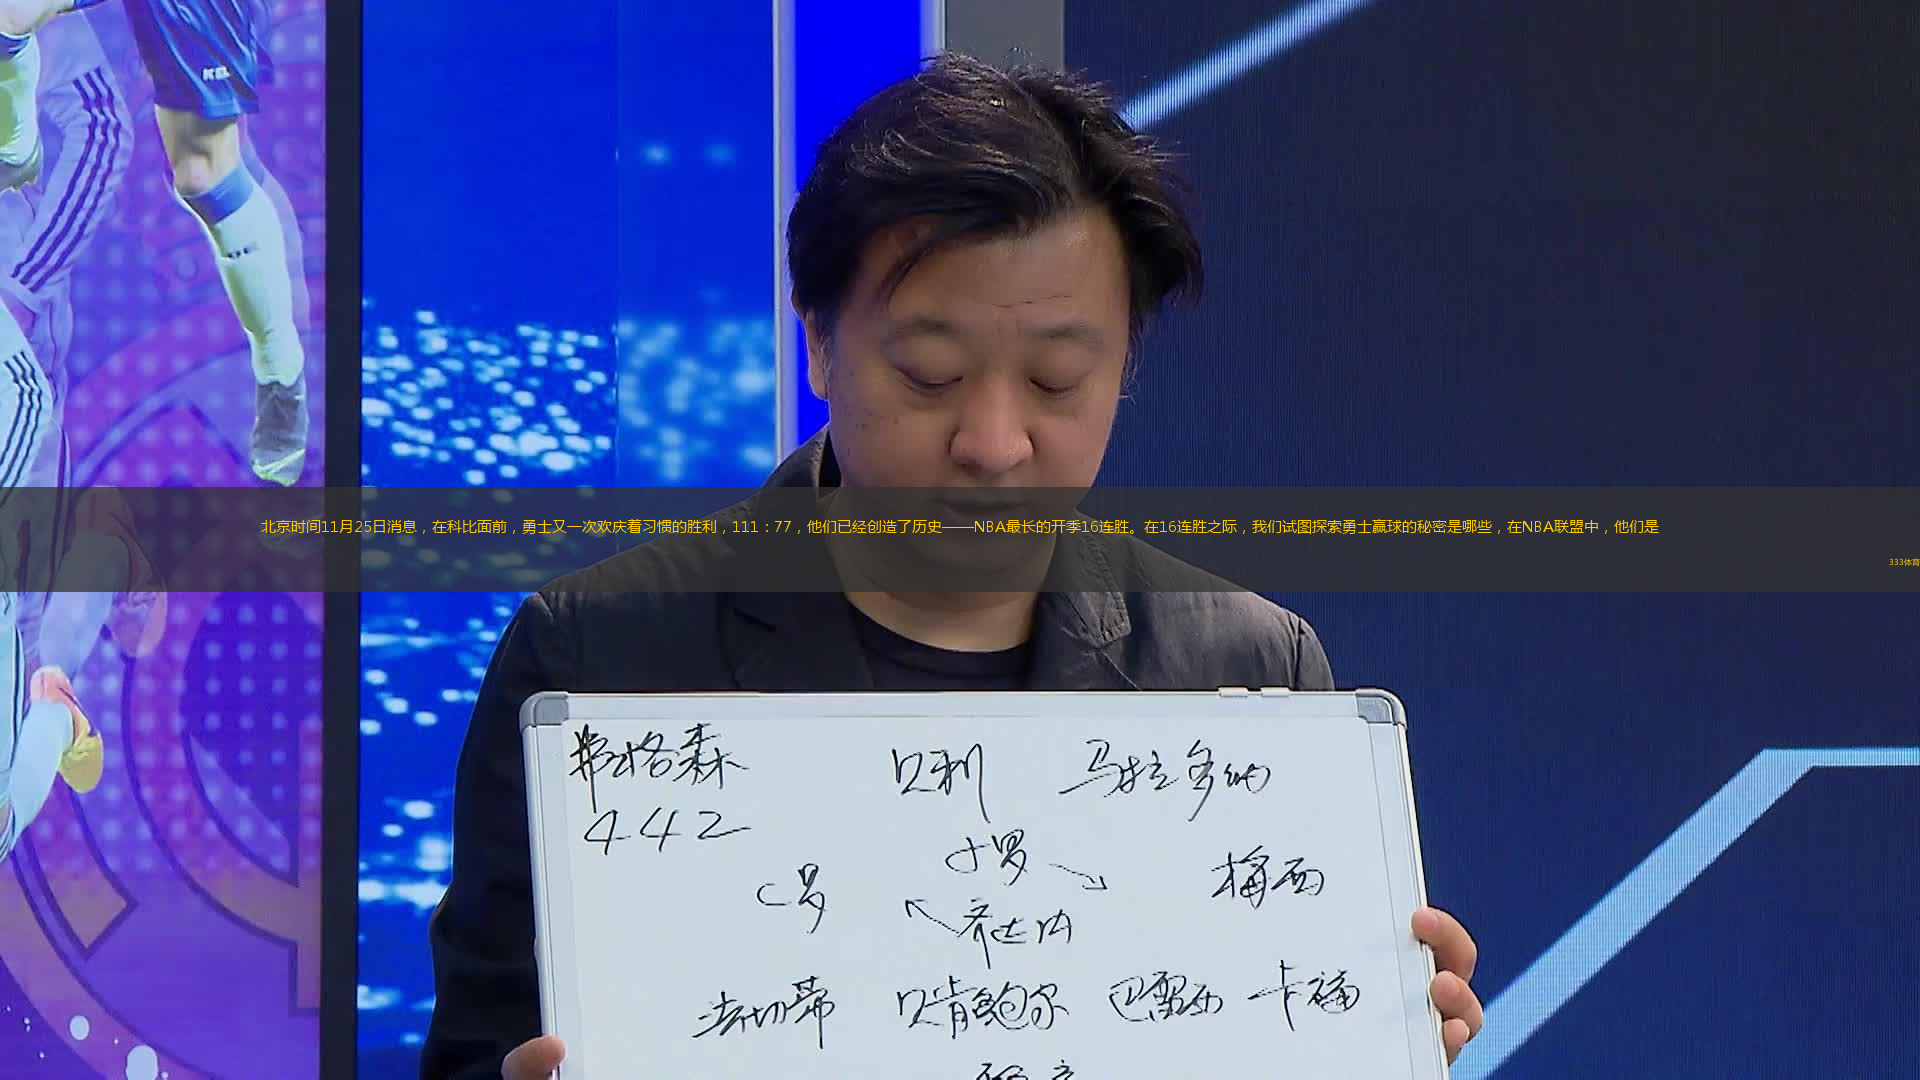 KEL
北京时间11月25日消息，在科比面前，勇士又一次欢庆着习惯的胜利，111：77，他们已经创造了历史——NBA最长的开季16连胜。在16连胜之际，我们试图探索勇士赢球的秘密是哪些，在NBA联盟中，他们是
333体育
弗格森 贝利 马拉多纳
442
小罗
C罗 梅西
齐达内
法切蒂 贝肯鲍尔 巴雷西 卡福